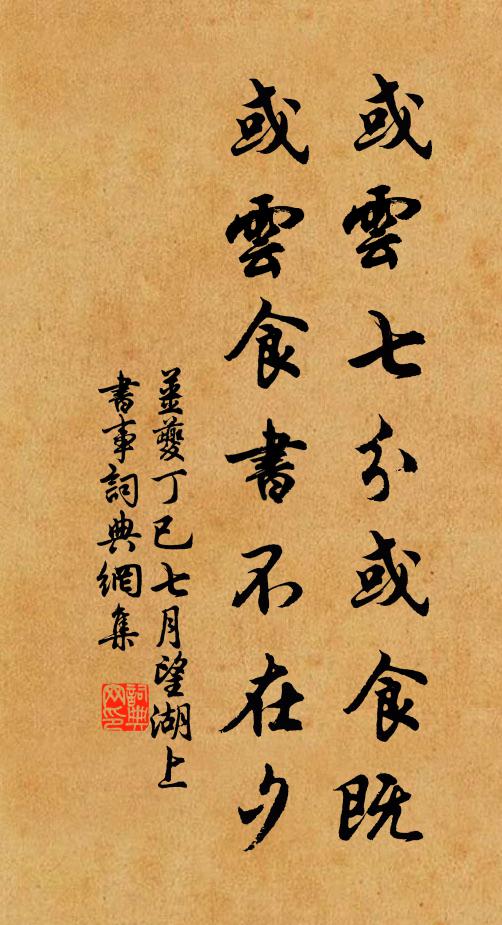 或雲七分或食既
或雲食書不在夕
姜夔丁巳七月望湖上
書事詞典網集
詞典網印